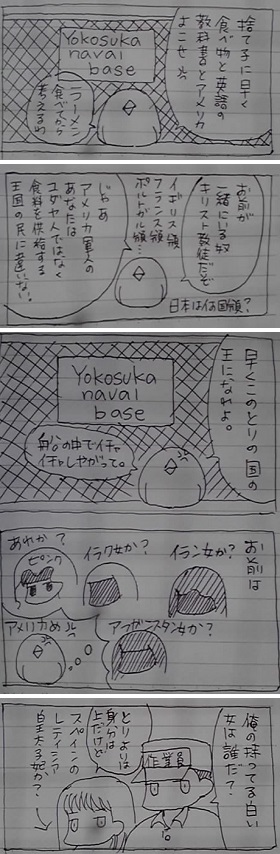 捨て子に早く
食べ物と英語の
教科書とアメリカ
よこせ
Yokosuka
naval
base
ラーメン
食べてから
考えるわ
お前が
一緒にいる奴
キリスト教徒だぞ
イギリス領
フランス領
ポルトガル領…
日本は何国領？
じゃあ
アメリカ軍人の
あなたは
ユダヤ人ではなく
食料を供給する
王国の民に違いない。
早くこのとりの国の
王になれよ。
Yokosuka
naval
base
身分の中でイチャ
イチャしやがって。
お前は
イラン女か？
イラク女か？
あれか？
ピンク
アフガニスタン女か？
アメリカめ
俺の持ってる白い
女は誰だ？
作業員
とりよりは
身分は
上だけど
スペインの
レティシア
皇太子妃か？